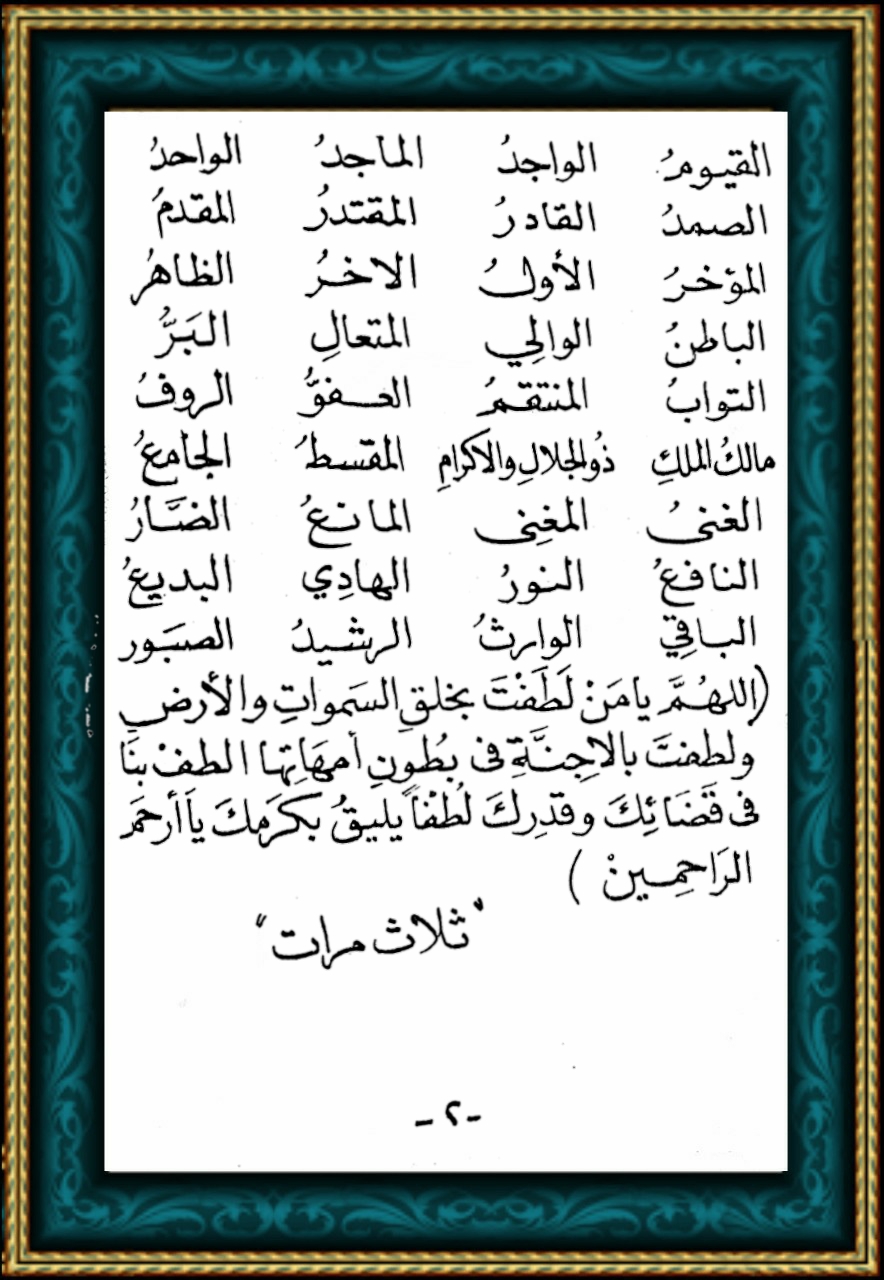 القيومُ الواجدُ الماجدُ الواحدُ
الصمدُ القادرُ المقتدرُ المقدمُ
المؤخرُ الأولُ الاخرُ الظاهرُ
الباطنُ الوالِي المتعالِ البَرُّ
التوابُ المنتقمُ العفوُّ الروفُ
مالكُ الملكِ ذُوالجلالِ والاكرامِ المقسطُ الجامعُ
الغنىُ المغنِى المانعُ الضَّارُ
النافعُ النورُ الهادِي البديعُ
الباقِي الوارثُ الرشيدُ الصبَور
(اللهُمَّ يامَنْ لَطَفْتَ بخلقِ السَمواتِ والأرضِ
ولطفتَ بالاجِنَّةِ فى بُطونِ أمهَاتِها الطفْ بنَا
فى قَضَائِكَ وقدَرِكَ لُطْفاً يليقُ بكرَمِكَ ياَأرحَمَ
الرَاحِمِينْ )
"ثلاث مرات"
-٢-